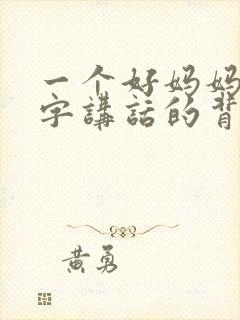 一个好妈妈
字講話的背
黄勇